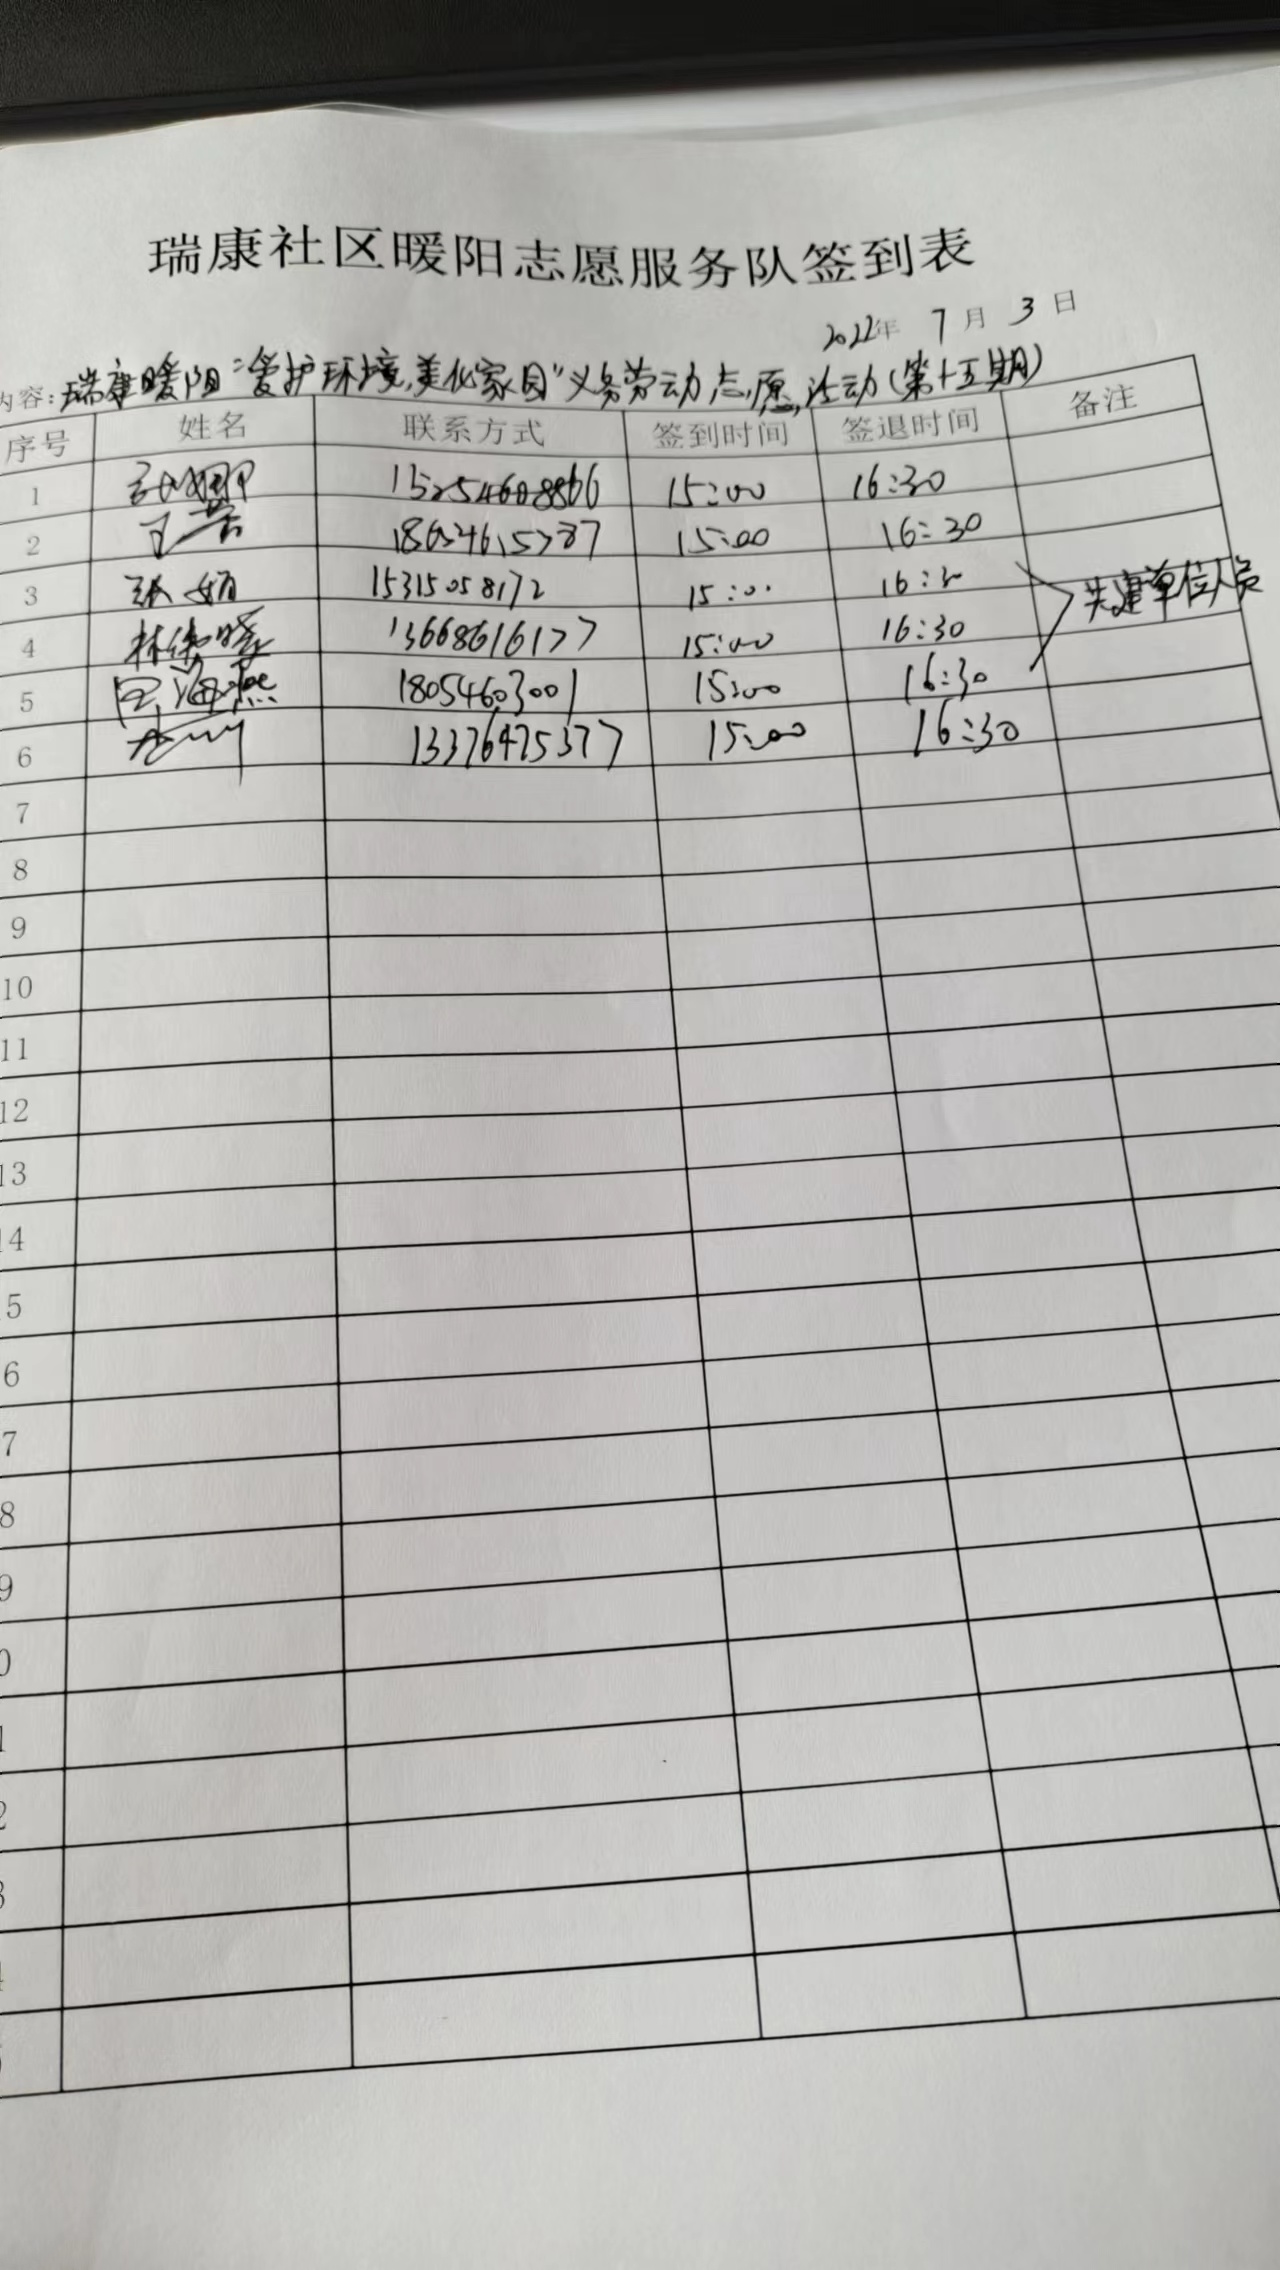 瑞康社区暖阳志愿服务队签到表
2022年 7月 3日
内容:瑞康暖阳"爱护环境,美化家园"义务劳动志愿活动(第十五期)
序号 姓名 联系方式 签到时间 签退时间 备注
1 15:00 16:30
2 15:00 16:30
3 张娟 15315058172 15:00 16:30 共建单位人员
4 13668616177 15:00 16:30
5 海燕 18054603001 15:00 16:30
6 13376475377 15:00 16:30
7
8
9
10
11
12
13
14
5
6
7
8
9
0
1
2
3
4